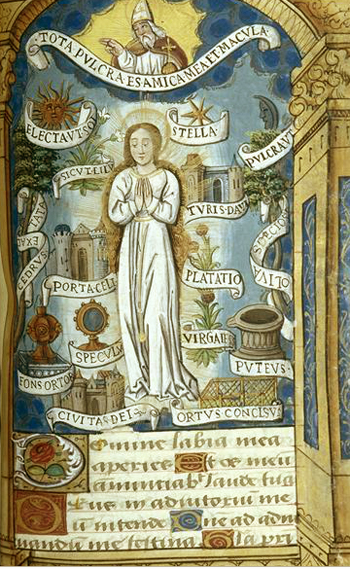 TOTA PVLCRA ES AMICA MEA ET MACVLA
ELECTA VT SOL
STELLA
PVLCRA VT
SICVT LILI
TVRIS DA
CEDRVS EXA
OLIVA SPECIOS
PORTA CELI
PLATATIO
SPECVLV
VIRGA IE
FONS ORTO
PVTEVS
CIVITAS DEI
ORTVS CONCLVSV
Domine labia mea
aperies Et os meu
annuntiabit laude tua
Deus in adiutoriu me
u intende Dne ad adiu
mea